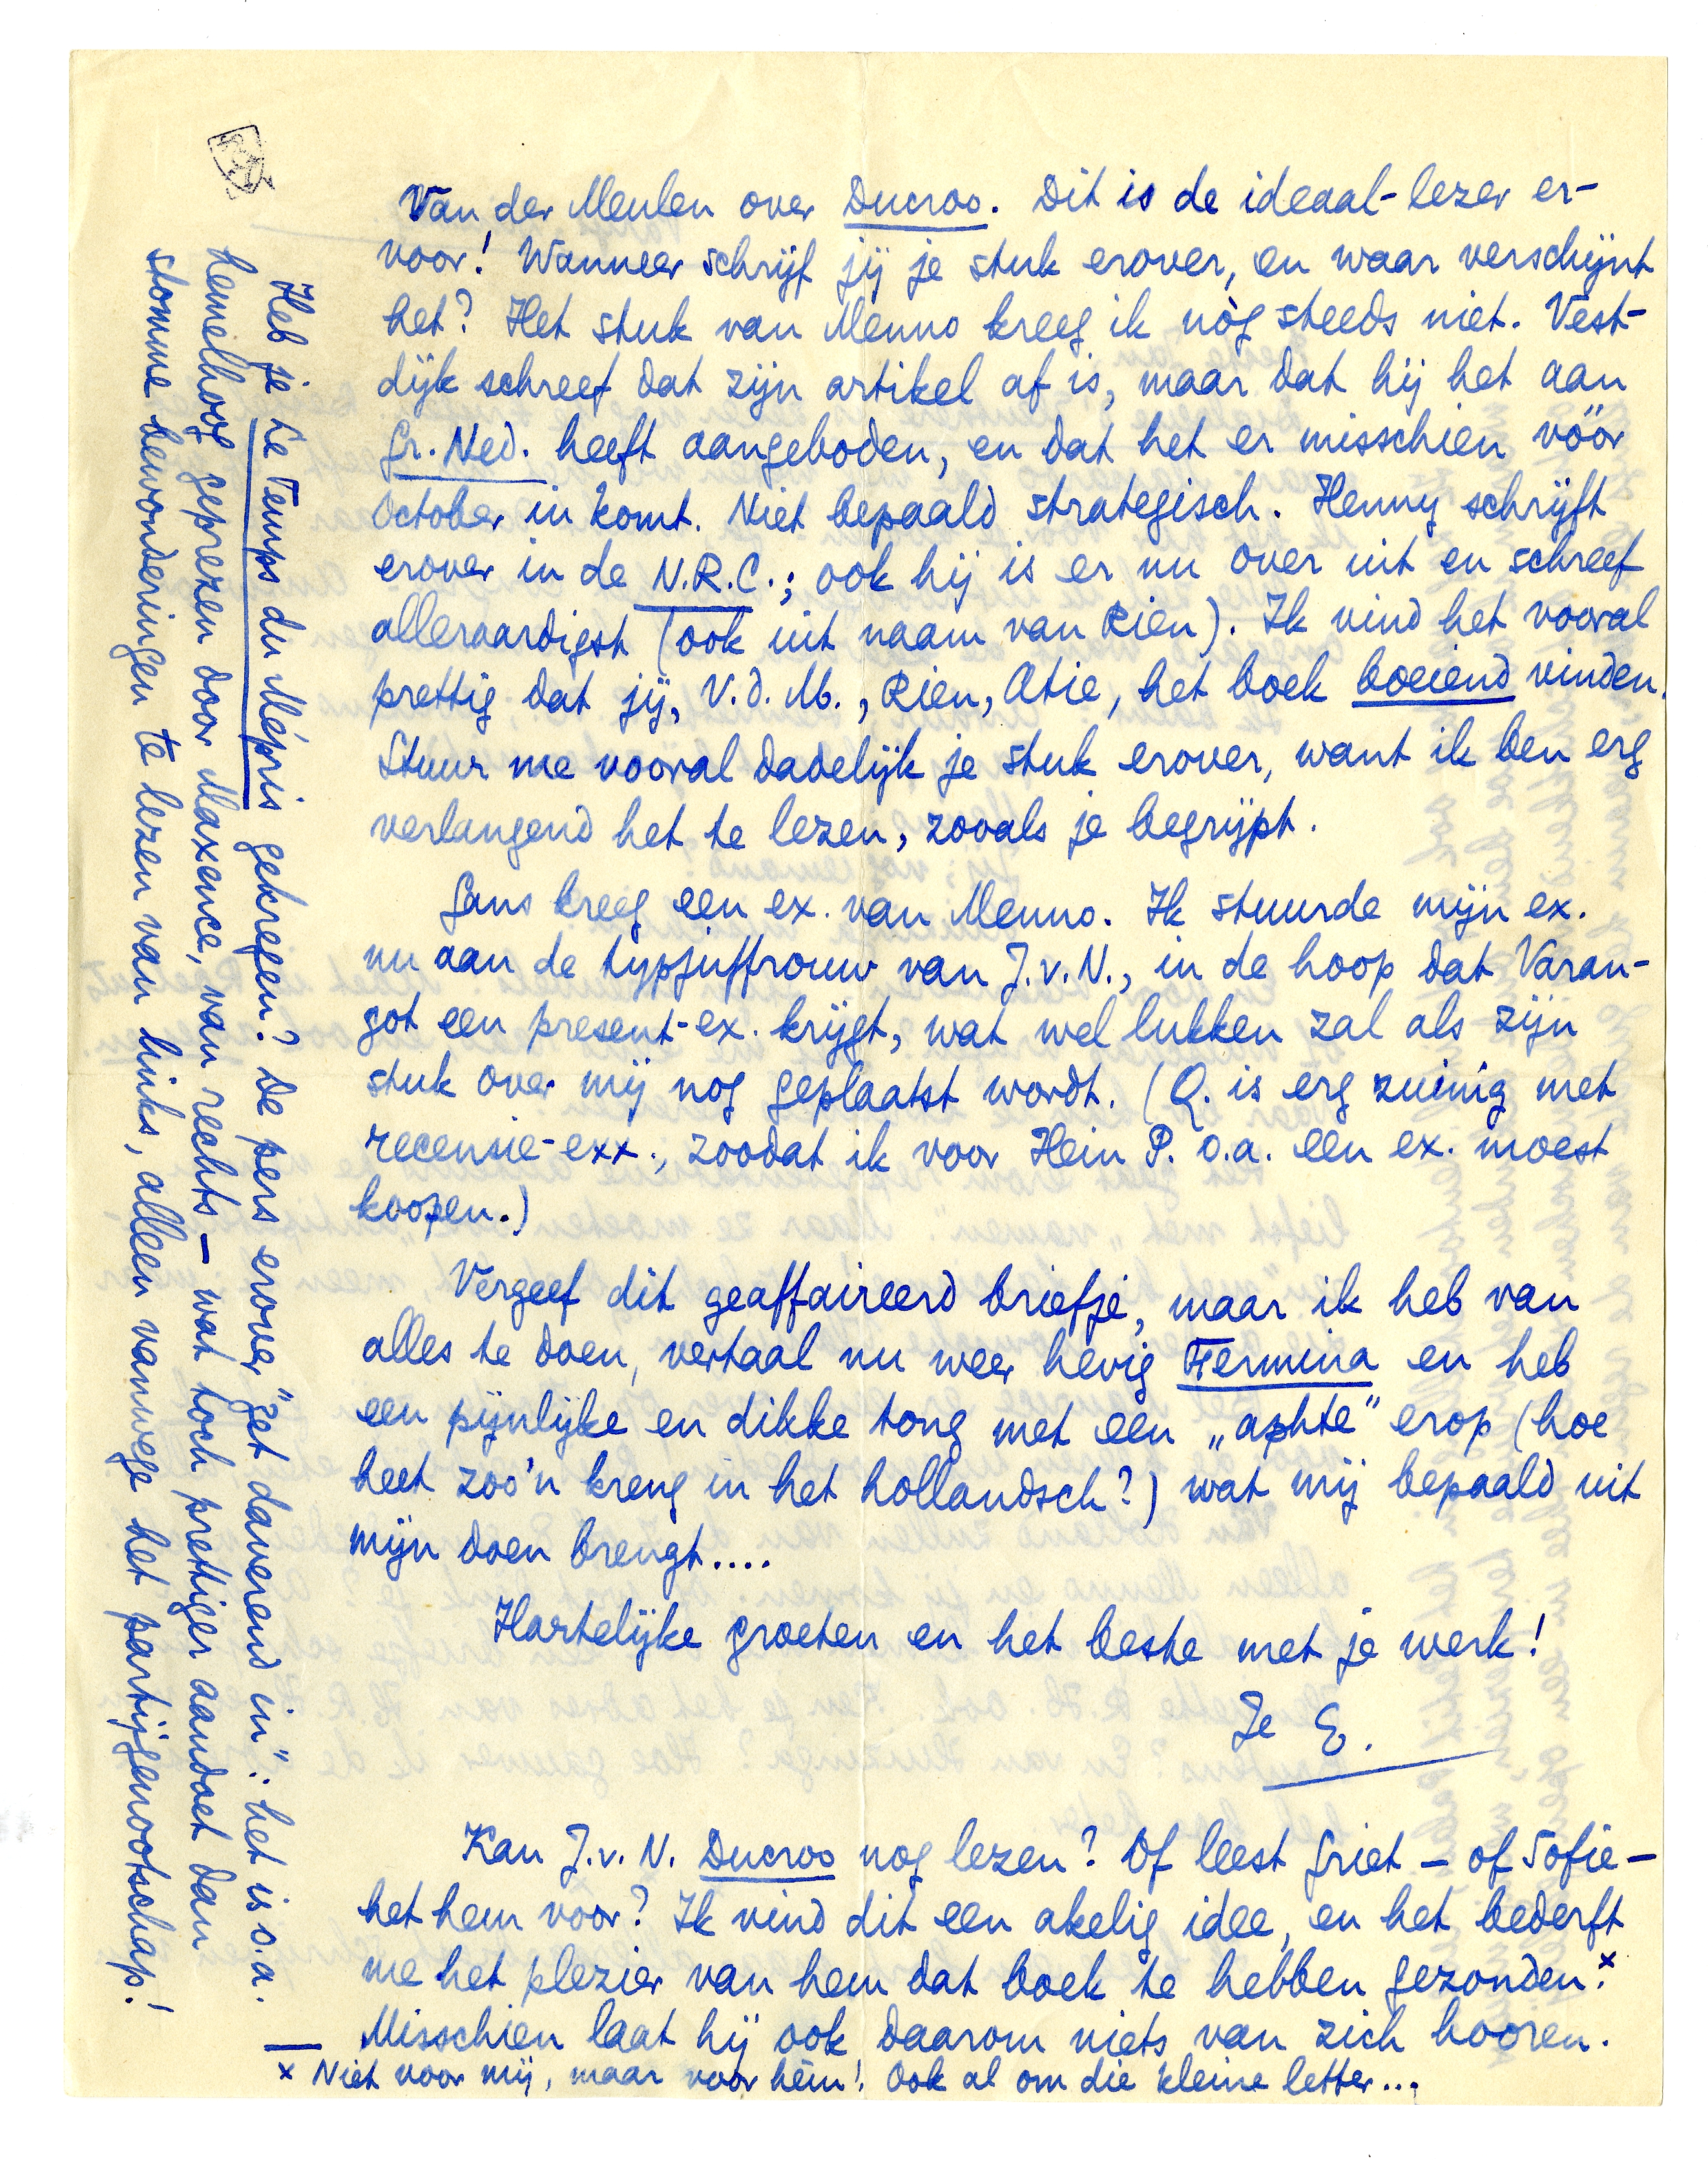 Van der Meulen over Ducroo. Dit is de ideaal-lezer er-
voor! Wanneer schrijf jij je stuk erover, en waar verschijnt
het? Het stuk van Menno kreeg ik nòg steeds niet. Vest-
dijk schreef dat zijn artikel af is, maar dat hij het aan
Gr. Ned. heeft aangeboden, en dat het er misschien vóór
October in komt. Niet bepaald strategisch. Henny schrijft
erover in de N.R.C.; ook hij is er nu over uit en schreef
alleraardigst (ook uit naam van Rien). Ik vind het vooral
prettig dat jij, V.d.M., Rien, Atie, het boek boeiend vinden.
Stuur me vooral dadelijk je stuk erover, want ik ben erg
verlangend het te lezen, zooals je begrijpt.
Gans kreeg een ex. van Menno. Ik stuurde mijn ex.
nu aan de typjuffrouw van J.v.N., in de hoop dat Varan-
got een present-ex. krijgt, wat wel lukken zal als zijn
stuk over mij nog geplaatst wordt. (Q. is erg zuinig met
recensie-exx., zoodat ik voor Hein P. o.a. een ex. moest
koopen.)
Vergeef dit geaffaireerd briefje, maar ik heb van
alles te doen, vertaal nu weer hevig Fermina en heb
een pijnlijke en dikke tong met een „aphte" erop (hoe
heet zoo'n kreng in het hollandsch?) wat mij bepaald uit
mijn doen brengt....
Hartelijke groeten en het beste met je werk!
Je E.
Kan J.v.N. Ducroo nog lezen? Of leest Griet - of Sofie -
het hem voor? Ik vind dit een akelig idee, en het bederft
me het plezier van hem dat boek te hebben gezonden.x
Misschien laat hij ook daarom niets van zich hooren.
x Niet voor mij, maar voor hèm! Ook al om die kleine letter...
Heb je Le Temps du Mépris gekregen? De pers erover „zet daverend in": het is o.a.
hemelhoog geprezen door Maxence, van rechts - wat toch prettiger aandoet dan
stomme bewonderingen te lezen van links, alleen vanwege het partijgenootschap!